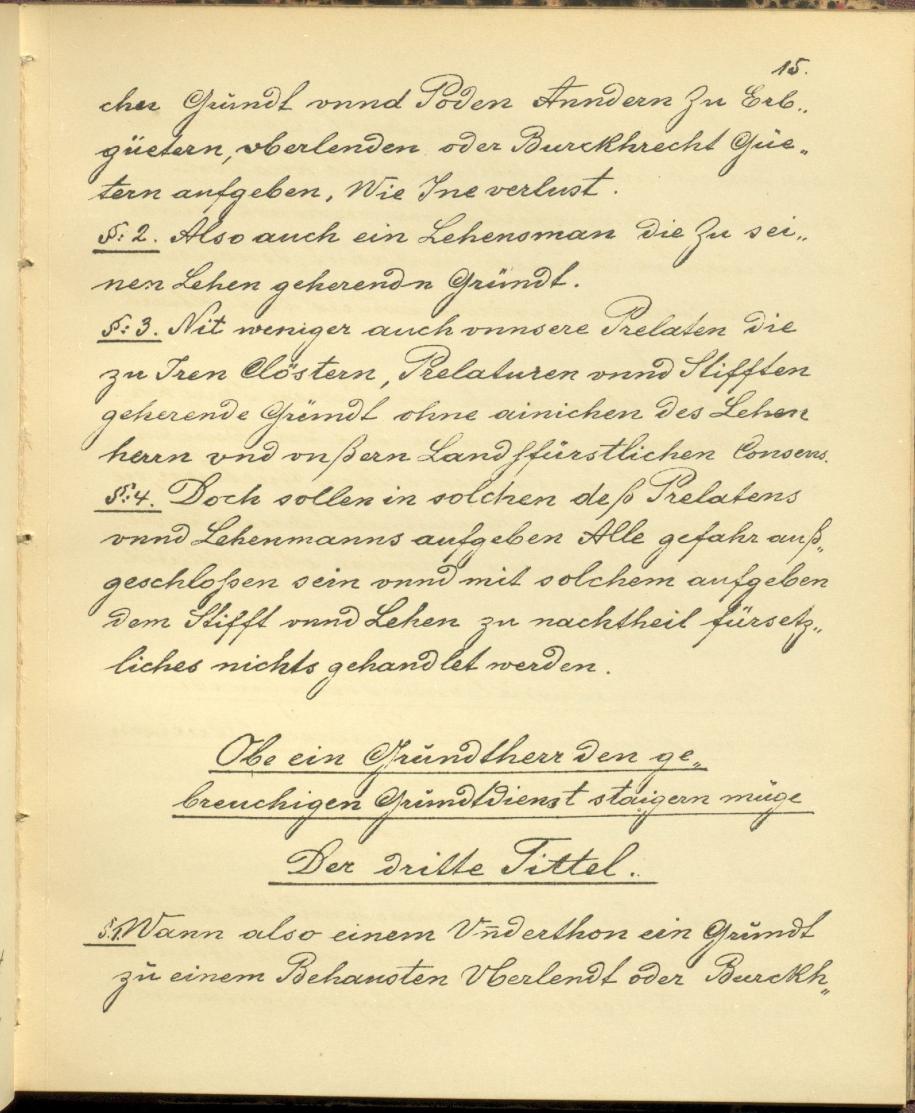 15.
cher Gründt vnnd Poden Anndern Zu Erb„
güetern, vberlenden oder Burckhrecht Güe„
tern aufgeben, Wie Ine verlust.
§: 2. Also auch ein Lehensman die Zu sei„
nen Lehen geherendn Gründt.
§: 3. Nit weniger auch vnnsere Prelaten die
zu Iren Clöstern, Prelaturen vnnd Stifften
geherende Gründt ohne ainichen des Lehen
herrn vnd vnßern Landßfürstlichen Consens.
§: 4. Doch sollen in solchen deß Prelatens
vnnd Lehenmanns aufgeben Alle gefahr auß„
geschloßen sein vnnd mit solchem aufgeben
dem Stifft vnnd Lehen zu nachtheil fürsetz„
liches nichts gehandlet werden.
Obe ein Grŭndtherr den ge„
breuchigen Grŭndtdienst staigern müge
Der dritte Tittel.
§.1. Wann also einem Vn̄derthon ein Grŭndt
zŭ einem Behausten Vberlendt oder Burckh„